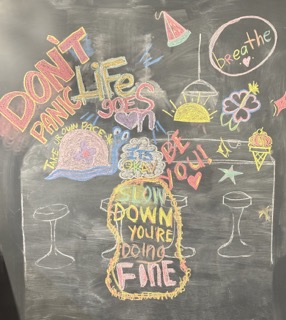 DON'T
PANIC
LiFe
GOES
ON
breathe
TAKE YOUR OWN PACE
IT'S
OKAY
BE
YOU!
SLOW
DOWN
YOU'RE
Doing
FINE